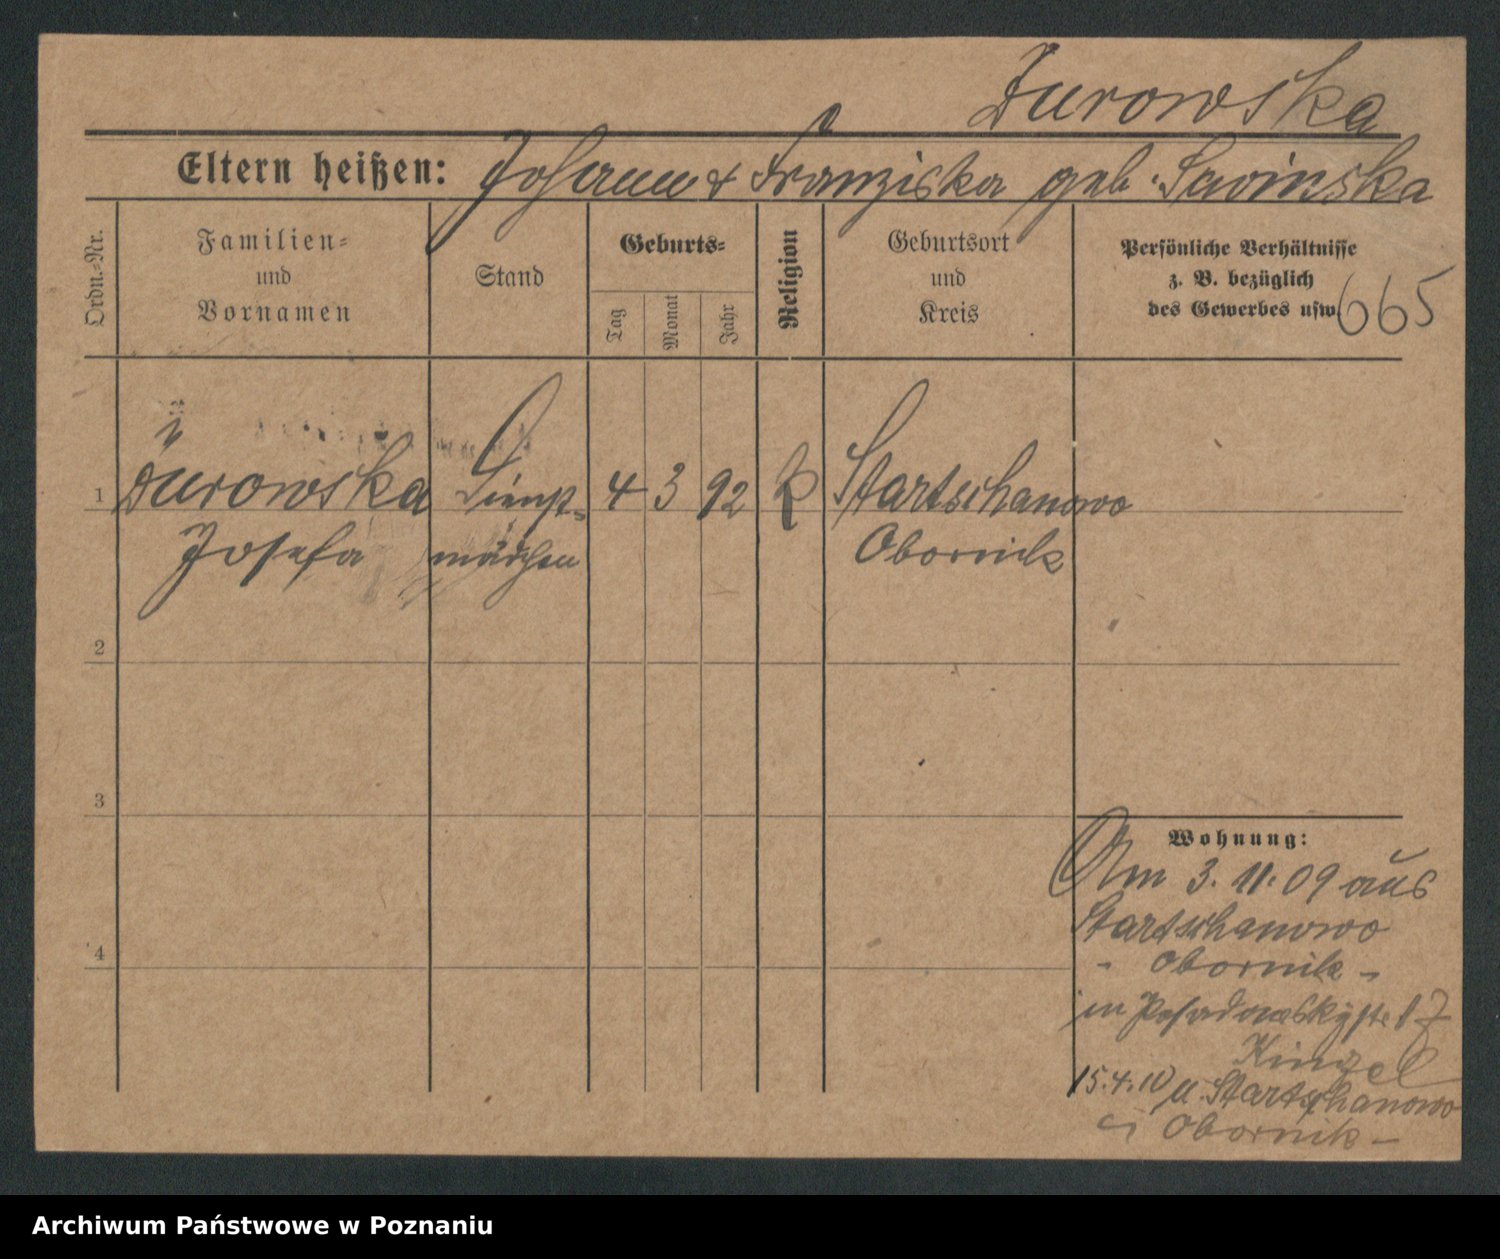 Zurowska
Eltern heißen: Johann & Franziska geb. Sawinska
Ordn.-Nr.
Familien-
und
Vornamen
Stand
Geburts-
Tag
Monat
Jahr
Religion
Geburtsort
und
Kreis
Persönliche Verhältnisse
z. B. bezüglich
des Gewerbes usw.
665
1 Zurowska Dienst- 4 3 92 k Startschanowo
Josefa mädchen Obornik
2
3
4
Wohnung:
Am 3. 11. 09 aus
Startschanowo
- Obornik -
in Posadowskystr. 17
15.4.10 n. Startschanowo
Obornik -
Archiwum Państwowe w Poznaniu